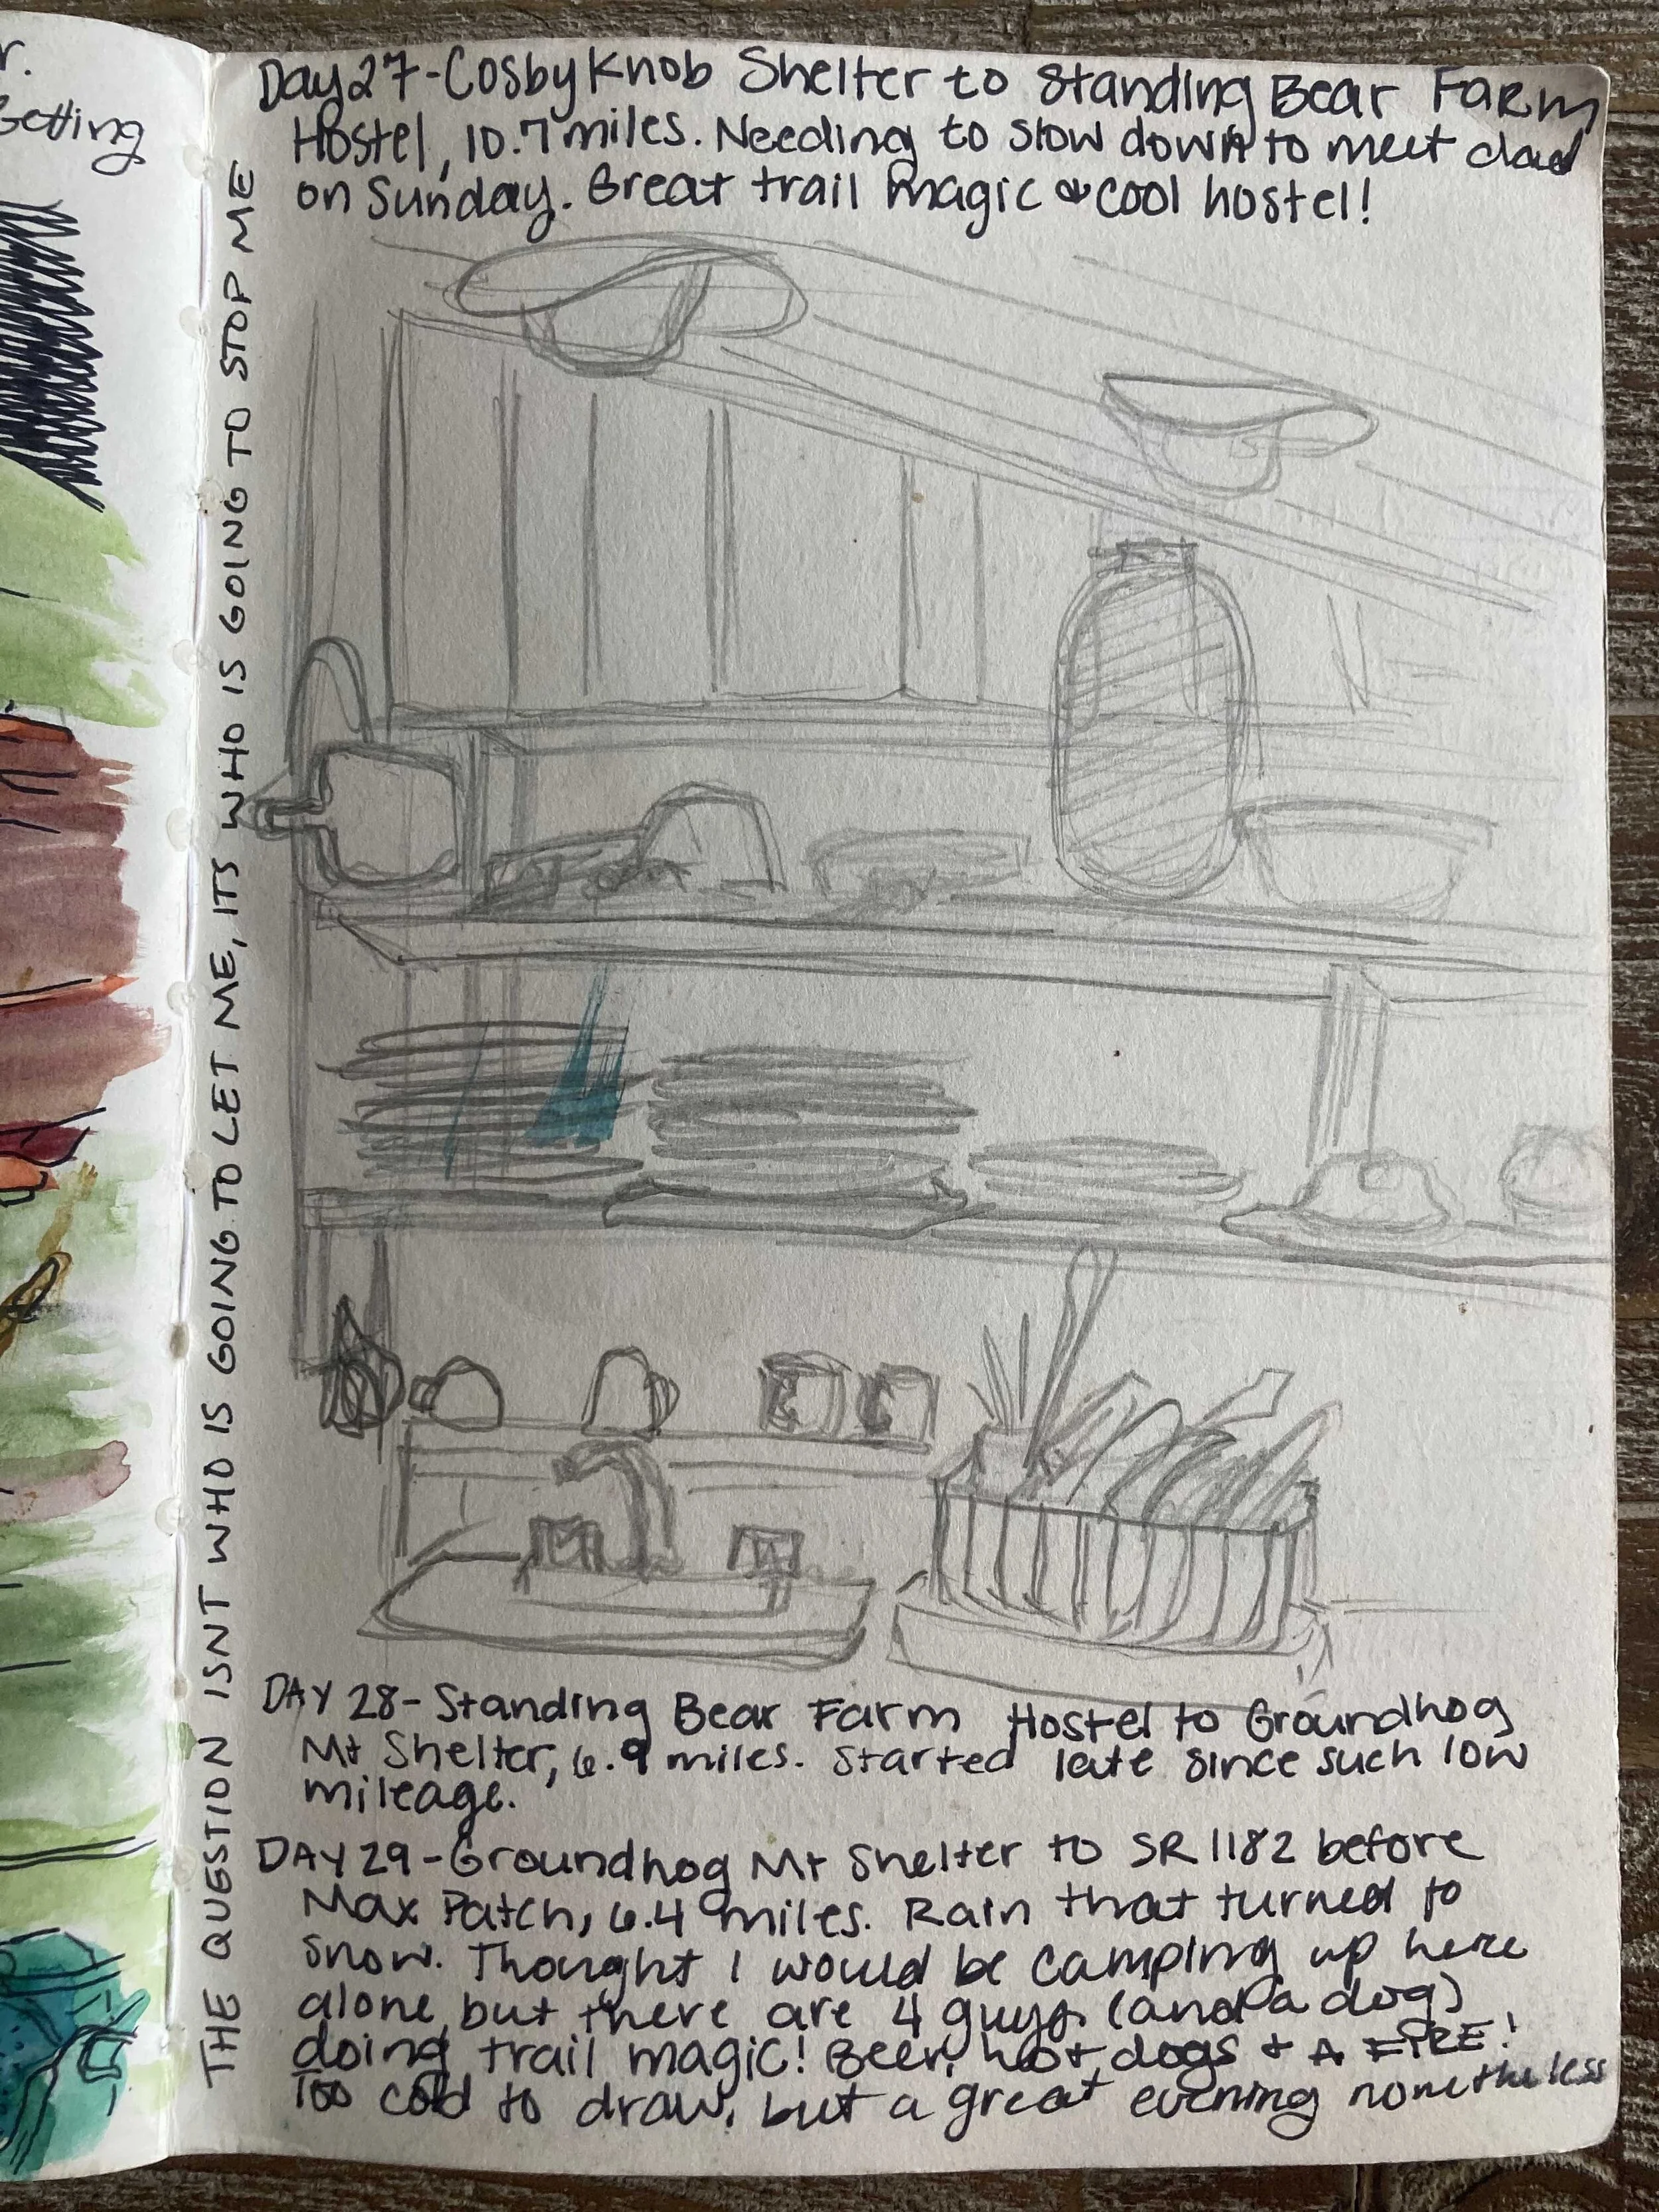 r.
Getting
Day 27-Cosby Knob Shelter to Standing Bear Farm
Hostel, 10.7 miles. Needing to slow down to meet dad
on Sunday. Great trail magic & cool hostel!
THE QUESTION ISNT WHO IS GOING TO LET ME, ITS WHO IS GOING TO STOP ME
DAY 28-Standing Bear Farm Hostel to Groundhog
Mt Shelter, 6.9 miles. Started late since such low
mileage.
DAY 29-Groundhog Mt Shelter to SR 1182 before
Max Patch, 6.4 miles. Rain that turned to
snow. Thought I would be camping up here
alone, but there are 4 guys (and a dog)
doing trail magic! Beer, hot dogs + A FIRE!
Too cold to draw, but a great evening nonetheless